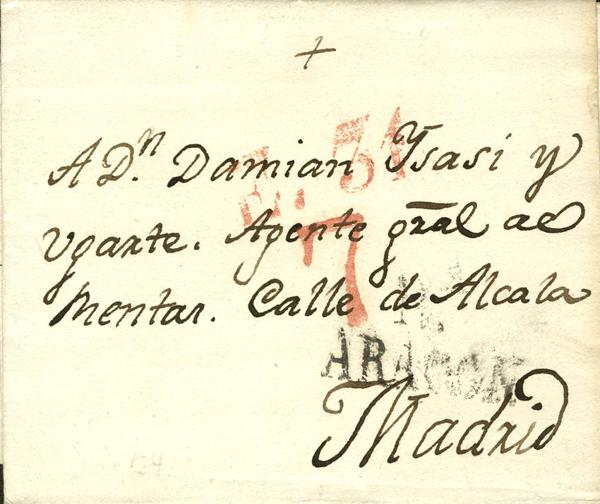 +
A D.n Damian Ysasi y
Ugarte. Agente gral de
Mentar. Calle de Alcala
ARAGON
Madrid
7
31